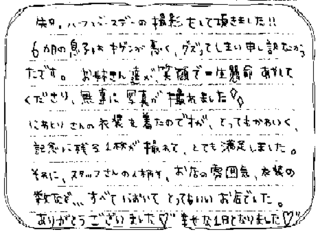 先日、ハーフバースデーの撮影をして頂きました!!
6か月の息子はキゲンが悪く、グズってしまい申し訳なかっ
たです。お姉さん達が笑顔で一生懸命あやして
くださり、無事に写真が撮れました
にあとりさんの衣装を着たのですが、とってもかわいく、
記念に残る1枚が撮れて、とても満足しました。
それに、スタッフさんの人柄も、お店の雰囲気、衣装の
数など…すべてにおいてとってもいいお店でした。
ありがとうございました♡幸せな1日となりました♡